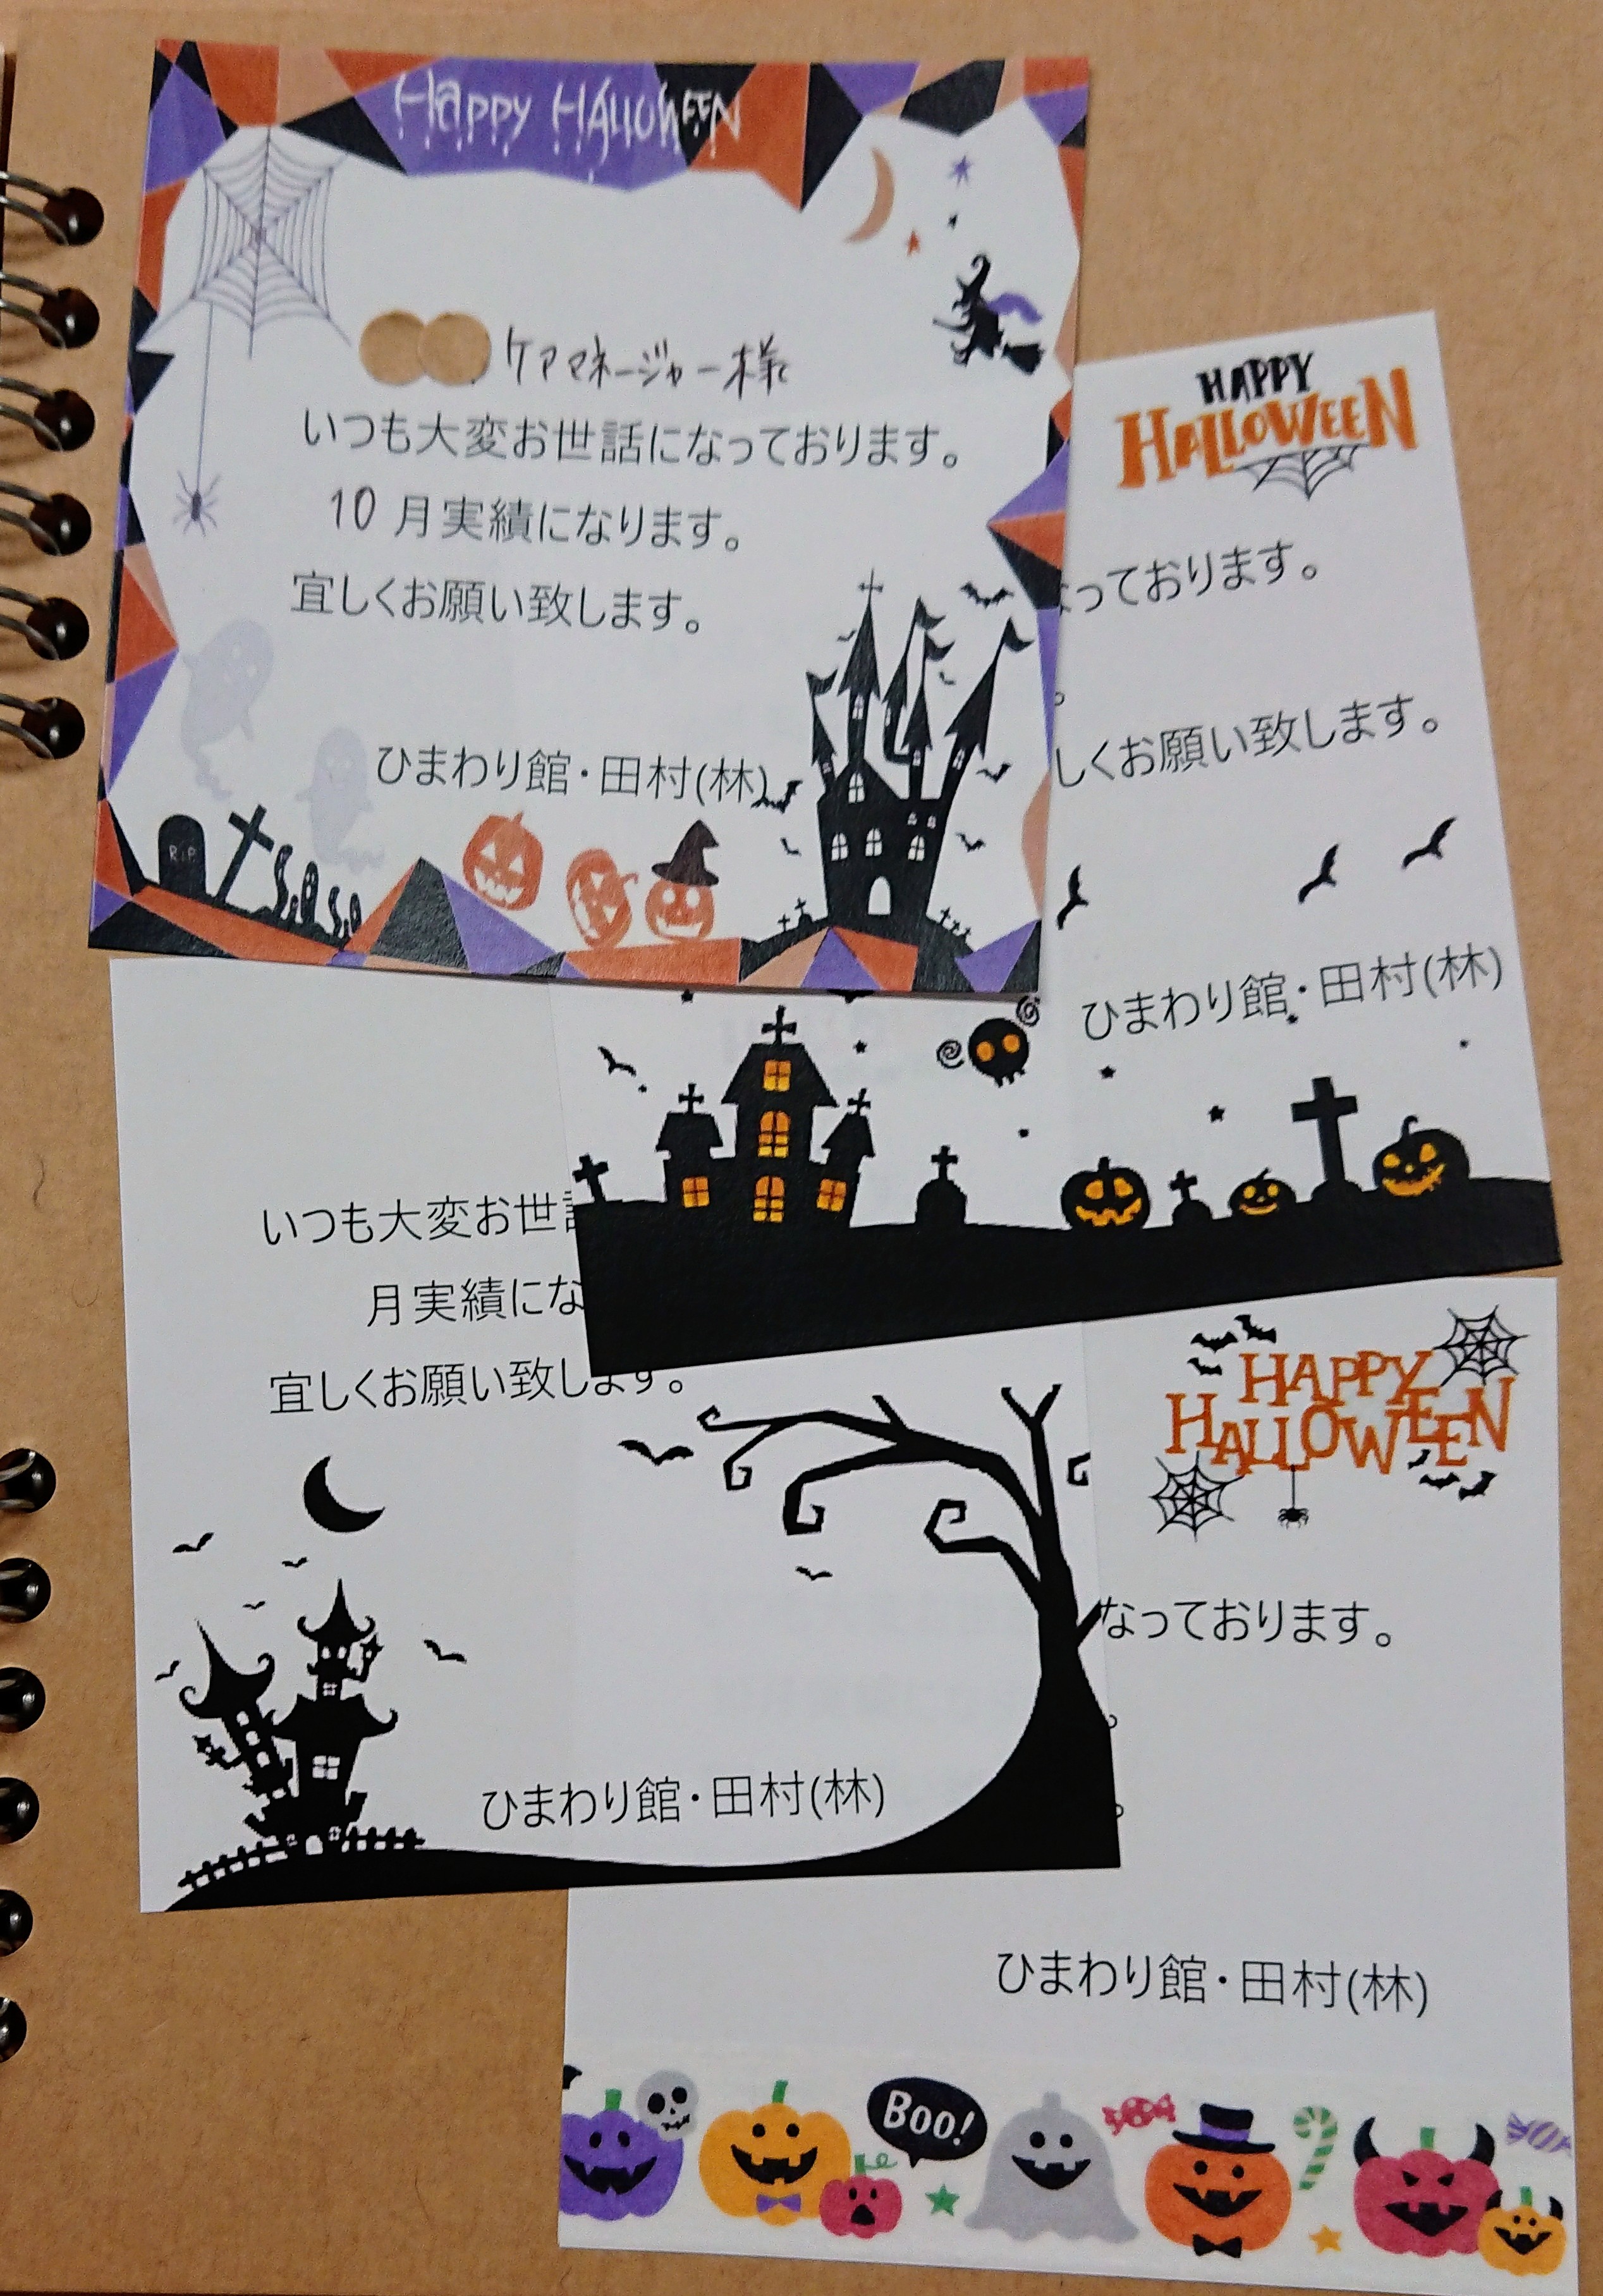 Happy Halloween
ケアマネージャー様
いつも大変お世話になっております。
10 月実績になります。
宜しくお願い致します。
ひまわり館・田村(林)
R.I.P
HAPPY
HALLOWEEN
っております。
。
しくお願い致します。
ひまわり館・田村(林)
いつも大変お世
月実績にな
宜しくお願い致します。
ひまわり館・田村(林)
HAPPY
HALLOWEEN
なっております。
ひまわり館・田村(林)
Boo!